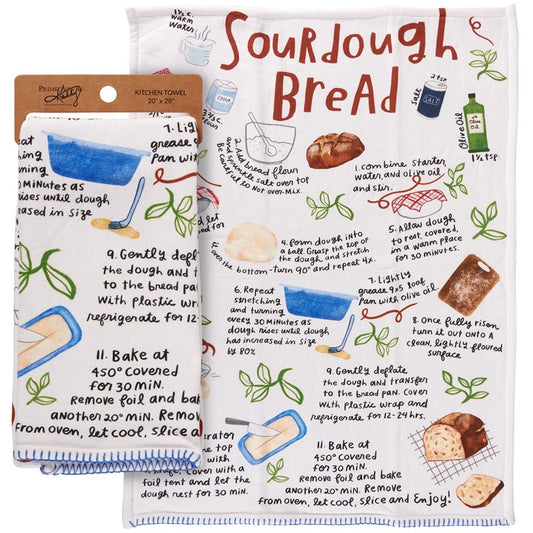 PRIMITIVES
Kathy
KITCHEN TOWEL
20" x 28"
7. Ligh
grease 9x
Pan with
eat
hing
rning
30 Minutes as
rises until dough
increased in Size
9. Gently defla
the dough and t
to the bread pan.
With plastic wrap
refrigerate for 12-
11. Bake at
450° covered
for 30 min.
Remove foil and bak
another 20° min. Remov
from oven, let cool, slice a
Sourdough
Bread
1½ C.
Warm
Water
FLOUR
2 tsp
Salt
SALT
Olive Oil
1½ tsp
1. Combine starter,
water, and olive oil
and stir.
2. Add bread flour
and sprinkle salt over top
Be careful to Not over-Mix.
nd let
for
4. Form dough into
a ball. Grasp the top of
the dough, and stretch
it over the bottom-turn 90° and repeat 4x.
5. Allow dough
to rest, covered,
in a warm place
for 30 minutes.
6. Repeat
stretching
and turning
every 30 Minutes as
dough rises until dough
has increased in Size
by 80%
7. Lightly
grease 9x5 loaf
Pan with olive oil.
8. Once fully risen
turn it out onto a
clean, lightly floured
surface
9. Gently deflate
the dough and transfer
to the bread pan. Cover
with plastic wrap and
refrigerate for 12-24 hrs.
erator
e top
with
Cover with a
foil tent and let the
dough rest for 30 min.
11. Bake at
450° covered
for 30 min.
Remove foil and bake
another 20° min. Remove
from oven, let cool, slice and Enjoy!